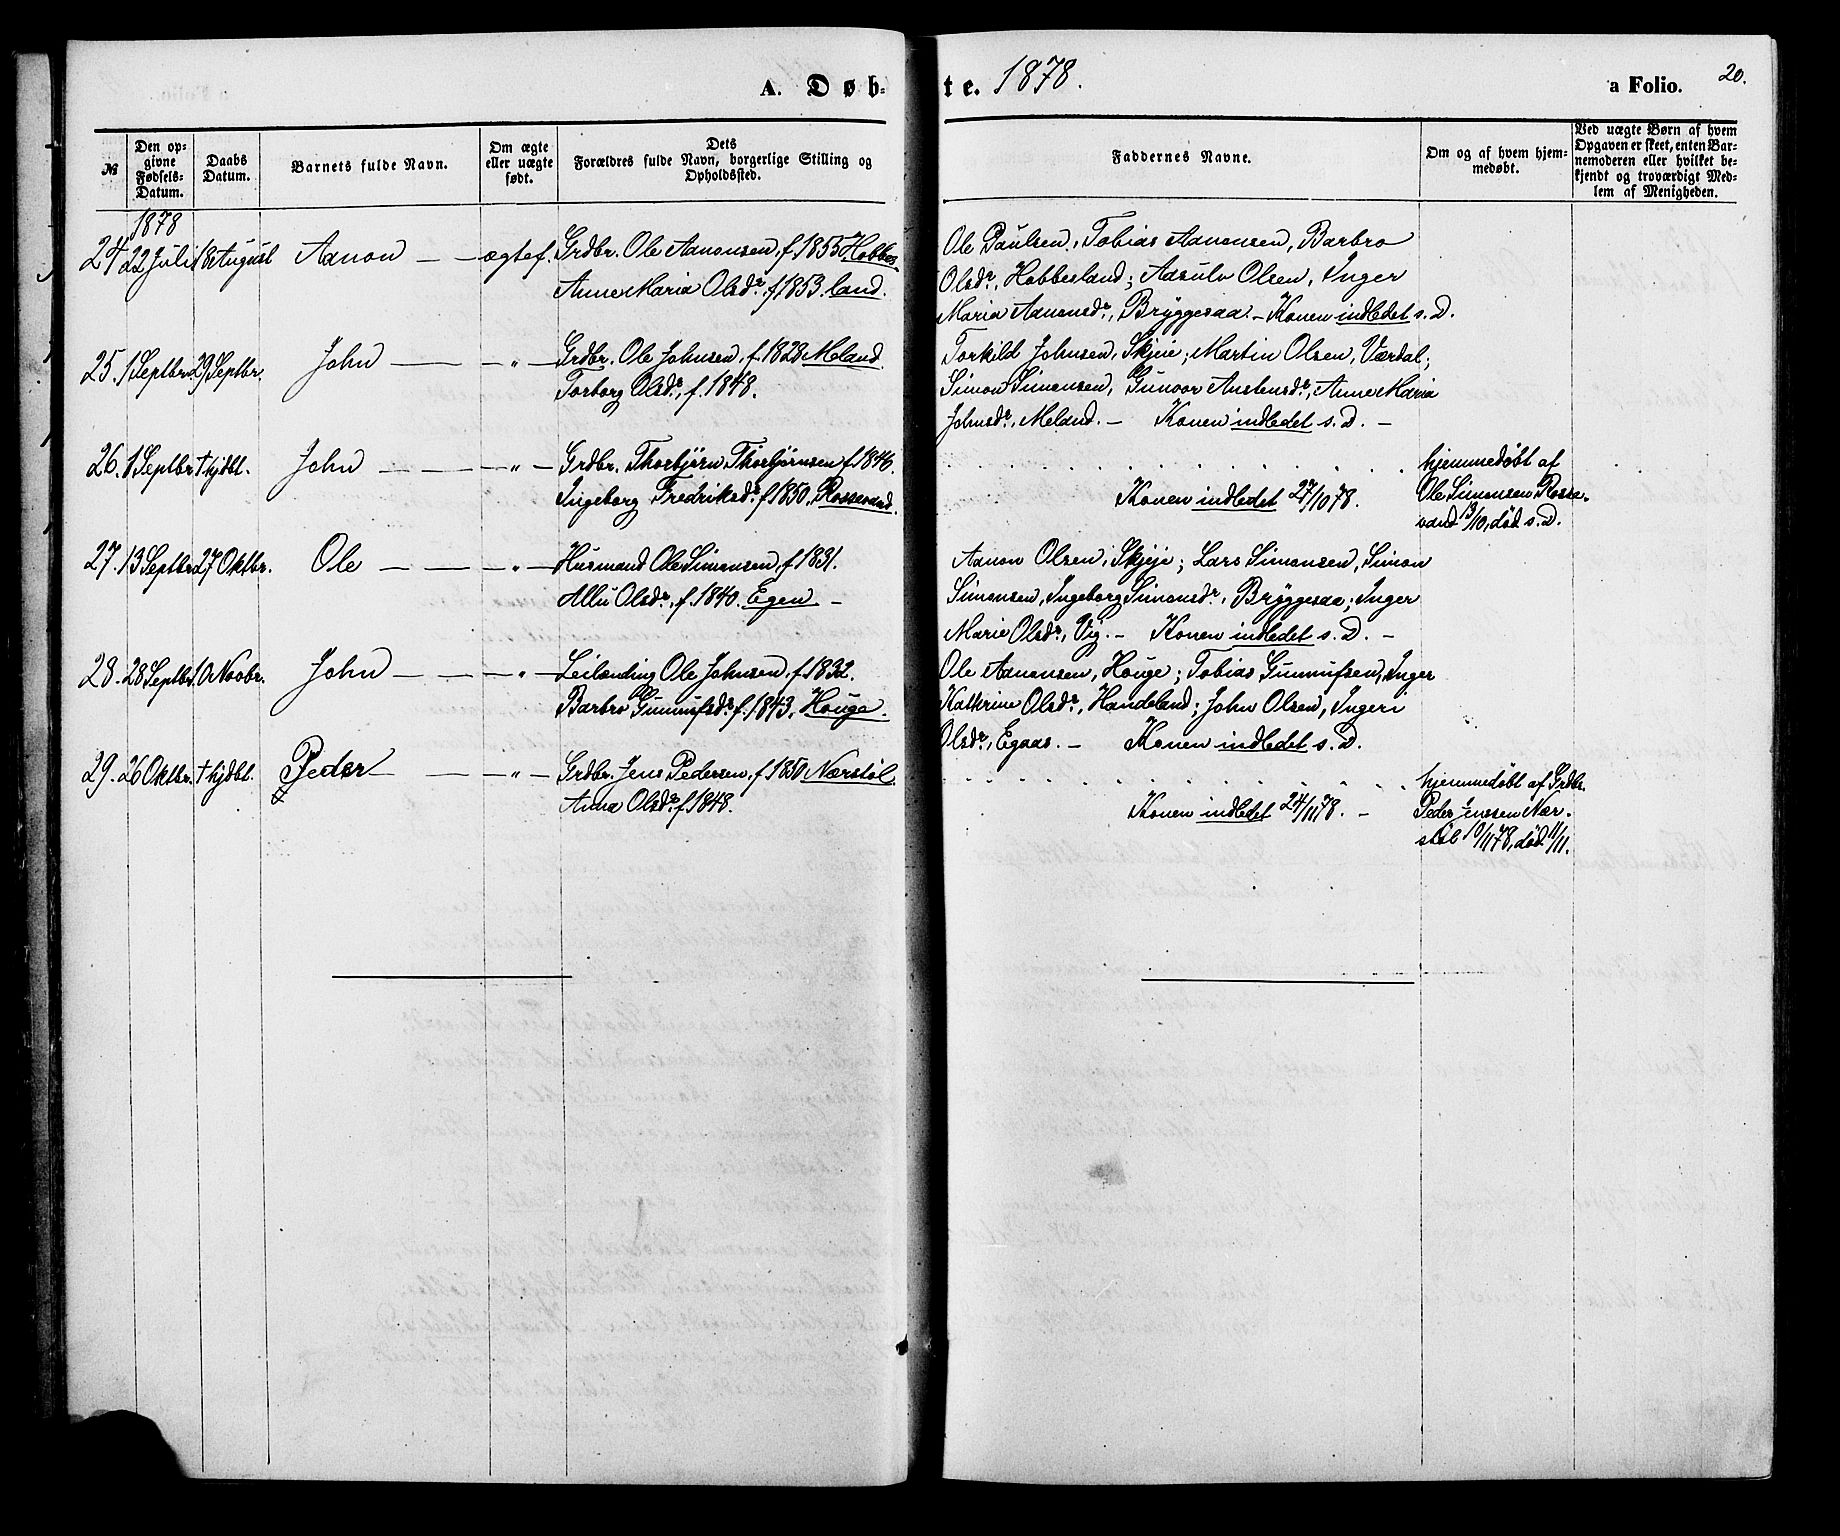 A. Døb-
te. 1878.
a Folio. 20.
№
Den op-
givne
Fødsels-
Datum.
Daabs
Datum.
Barnets fulde Navn.
Om ægte
eller uægte
født.
Dets
Forældres fulde Navn, borgerlige Stilling og
Opholdssted.
Faddernes Navne.
Om og af hvem hjem-
medøbt.
Ved uægte Børn af hvem
Opgaven er skeet, enten Bar-
nemoderen eller hvilket be-
kjendt og troværdigt Med-
lem af Menigheden.
1878
24 22 Juli 18 August Aanon — — ægtef. Grdbr. Ole Aanonsen, f. 1855 Hobbes
Anne Maria Olsdr. f 1853. land.
Ole Paulsen, Tobias Aanonsen, Barbro
Olsdr, Hobbesland; Aasulv Olsen, Inger
Maria Aanonsdr, Bryggesaa. — Konen indledet s. D.
25. 1 Septbr. 29 Septbr. John — — " — Grdbr. Ole Johnsen, f. 1828 Meland
Torborg Olsdr, f. 1848.
Torkild Johnsen, Skjeie; Martin Olsen, Værdal;
Simon Simonsen, Gunvor Austensdr, Anne Maria
Johnsdr, Meland. — Konen indledet s. D. —
26. 1 Septbr † hjdbt. John — — — " — Grdbr. Thorbjørn Thorbjørnsen f 1846.
Ingeborg Fredriksdr. f 1850. Rossevand.
Konen indledet 27/10 78.
hjemmedøbt af
Ole Simonsen Rosse-
vand 13/10, død s. D.
27. 13 Septbr. 27 Oktbr. Ole — — — " — Husmand Ole Simonsen, f 1831.
Allu Olsdr, f. 1840. Egen —
Aanon Olsen, Skjeie; Lars Simonsen, Simon
Simonsen, Ingeborg Simonsdr, Bryggesaa; Inger
Marie Olsdr, Vig. — Konen indledet s. D. —
28. 28 Septbr. 10 Novbr. John — — — " — Leilending Ole Johnsen, f. 1832.
Barbro Gunnufsdr. f. 1843, Houge.
Ole Aanonsen, Houge; Tobias Gunnufsen, Inger
Kathrine Olsdr, Handeland; John Olsen, Ingeri
Olsdr, Egaas. — Konen indledet s. D.
29. 26 Oktbr. † hjdbt. Peder — — " — Grdbr. Jens Pedersen, f 1850 Nærstøl.
Anna Olsdr. f. 1848.
Konen indledet 24/11 78. —
hjemmedøbt af Grdbr.
Peder Jenssen Nær-
støl 10/11 78, død 11/11.